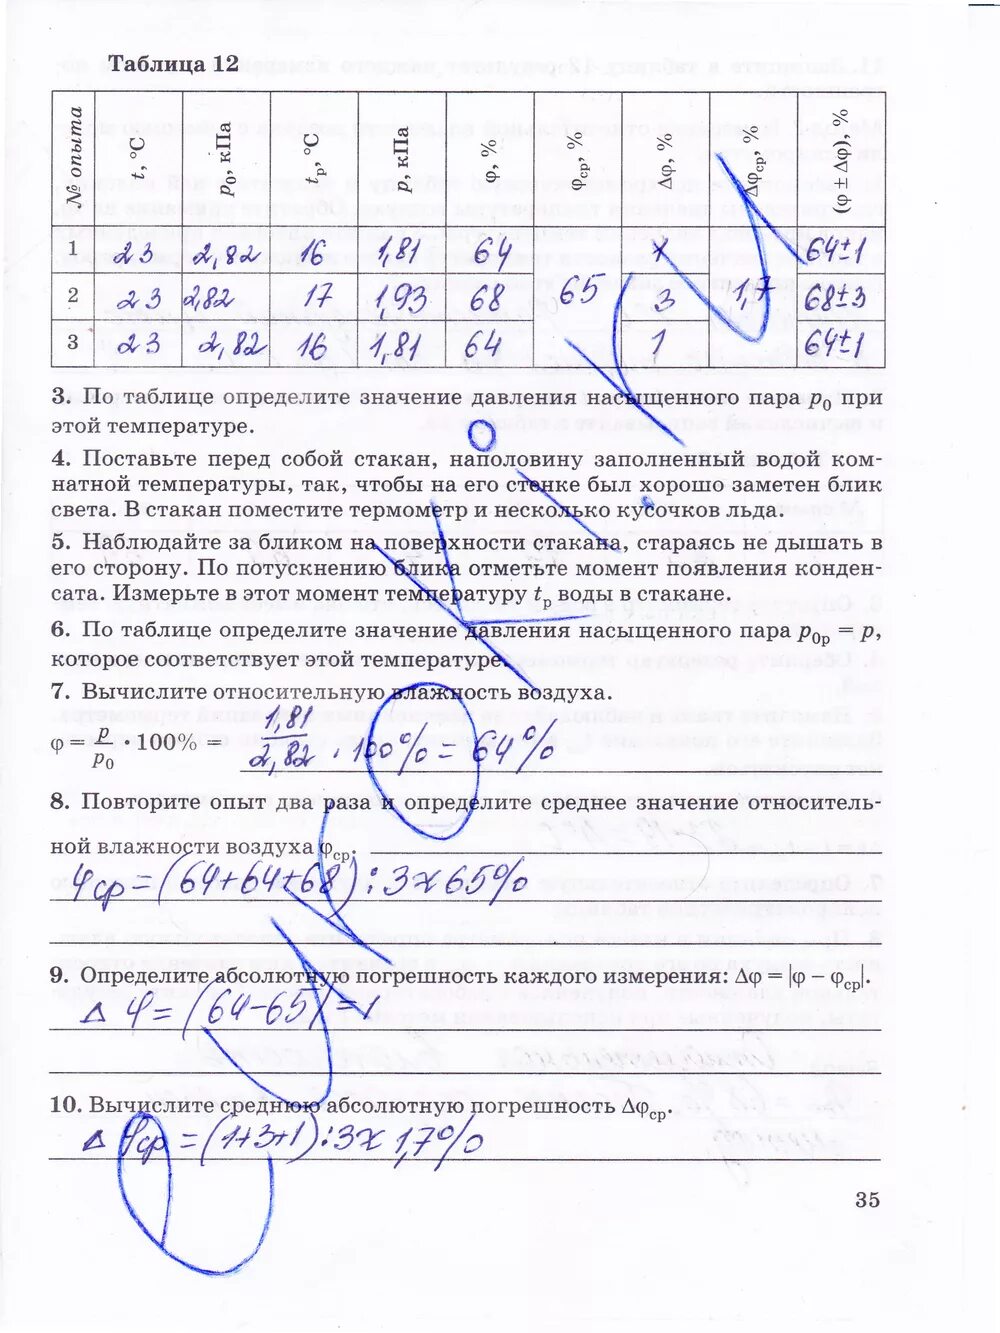 Таблица 12
№ опыта t, °C p₀, кПа tр, °C p, кПа φ, % φср, % Δφ, % Δφср, % (φ ± Δφ) %
1 23 2,82 16 1,81 64 1 64±1
2 23 2,82 17 1,93 68 65 3 1,7 68±3
3 23 2,82 16 1,81 64 1 64±1
3. По таблице определите значение давления насыщенного пара p₀ при
этой температуре.
4. Поставьте перед собой стакан, наполовину заполненный водой ком-
натной температуры, так, чтобы на его стенке был хорошо заметен блик
света. В стакан поместите термометр и несколько кусочков льда.
5. Наблюдайте за бликом на поверхности стакана, стараясь не дышать в
его сторону. По потускнению блика отметьте момент появления конден-
сата. Измерьте в этот момент температуру tр воды в стакане.
6. По таблице определите значение давления насыщенного пара p₀р = p,
которое соответствует этой температуре.
7. Вычислите относительную влажность воздуха.
φ = p/p₀ · 100% = 1,81/2,82 · 100% = 64%
8. Повторите опыт два раза и определите среднее значение относитель-
ной влажности воздуха φср.
φср = (64+64+68) : 3 ≈ 65%
9. Определите абсолютную погрешность каждого измерения: Δφ = |φ – φср|.
Δφ = (64-65) = 1
10. Вычислите среднюю абсолютную погрешность Δφср.
Δφср = (1+3+1) : 3 ≈ 1,7%
35